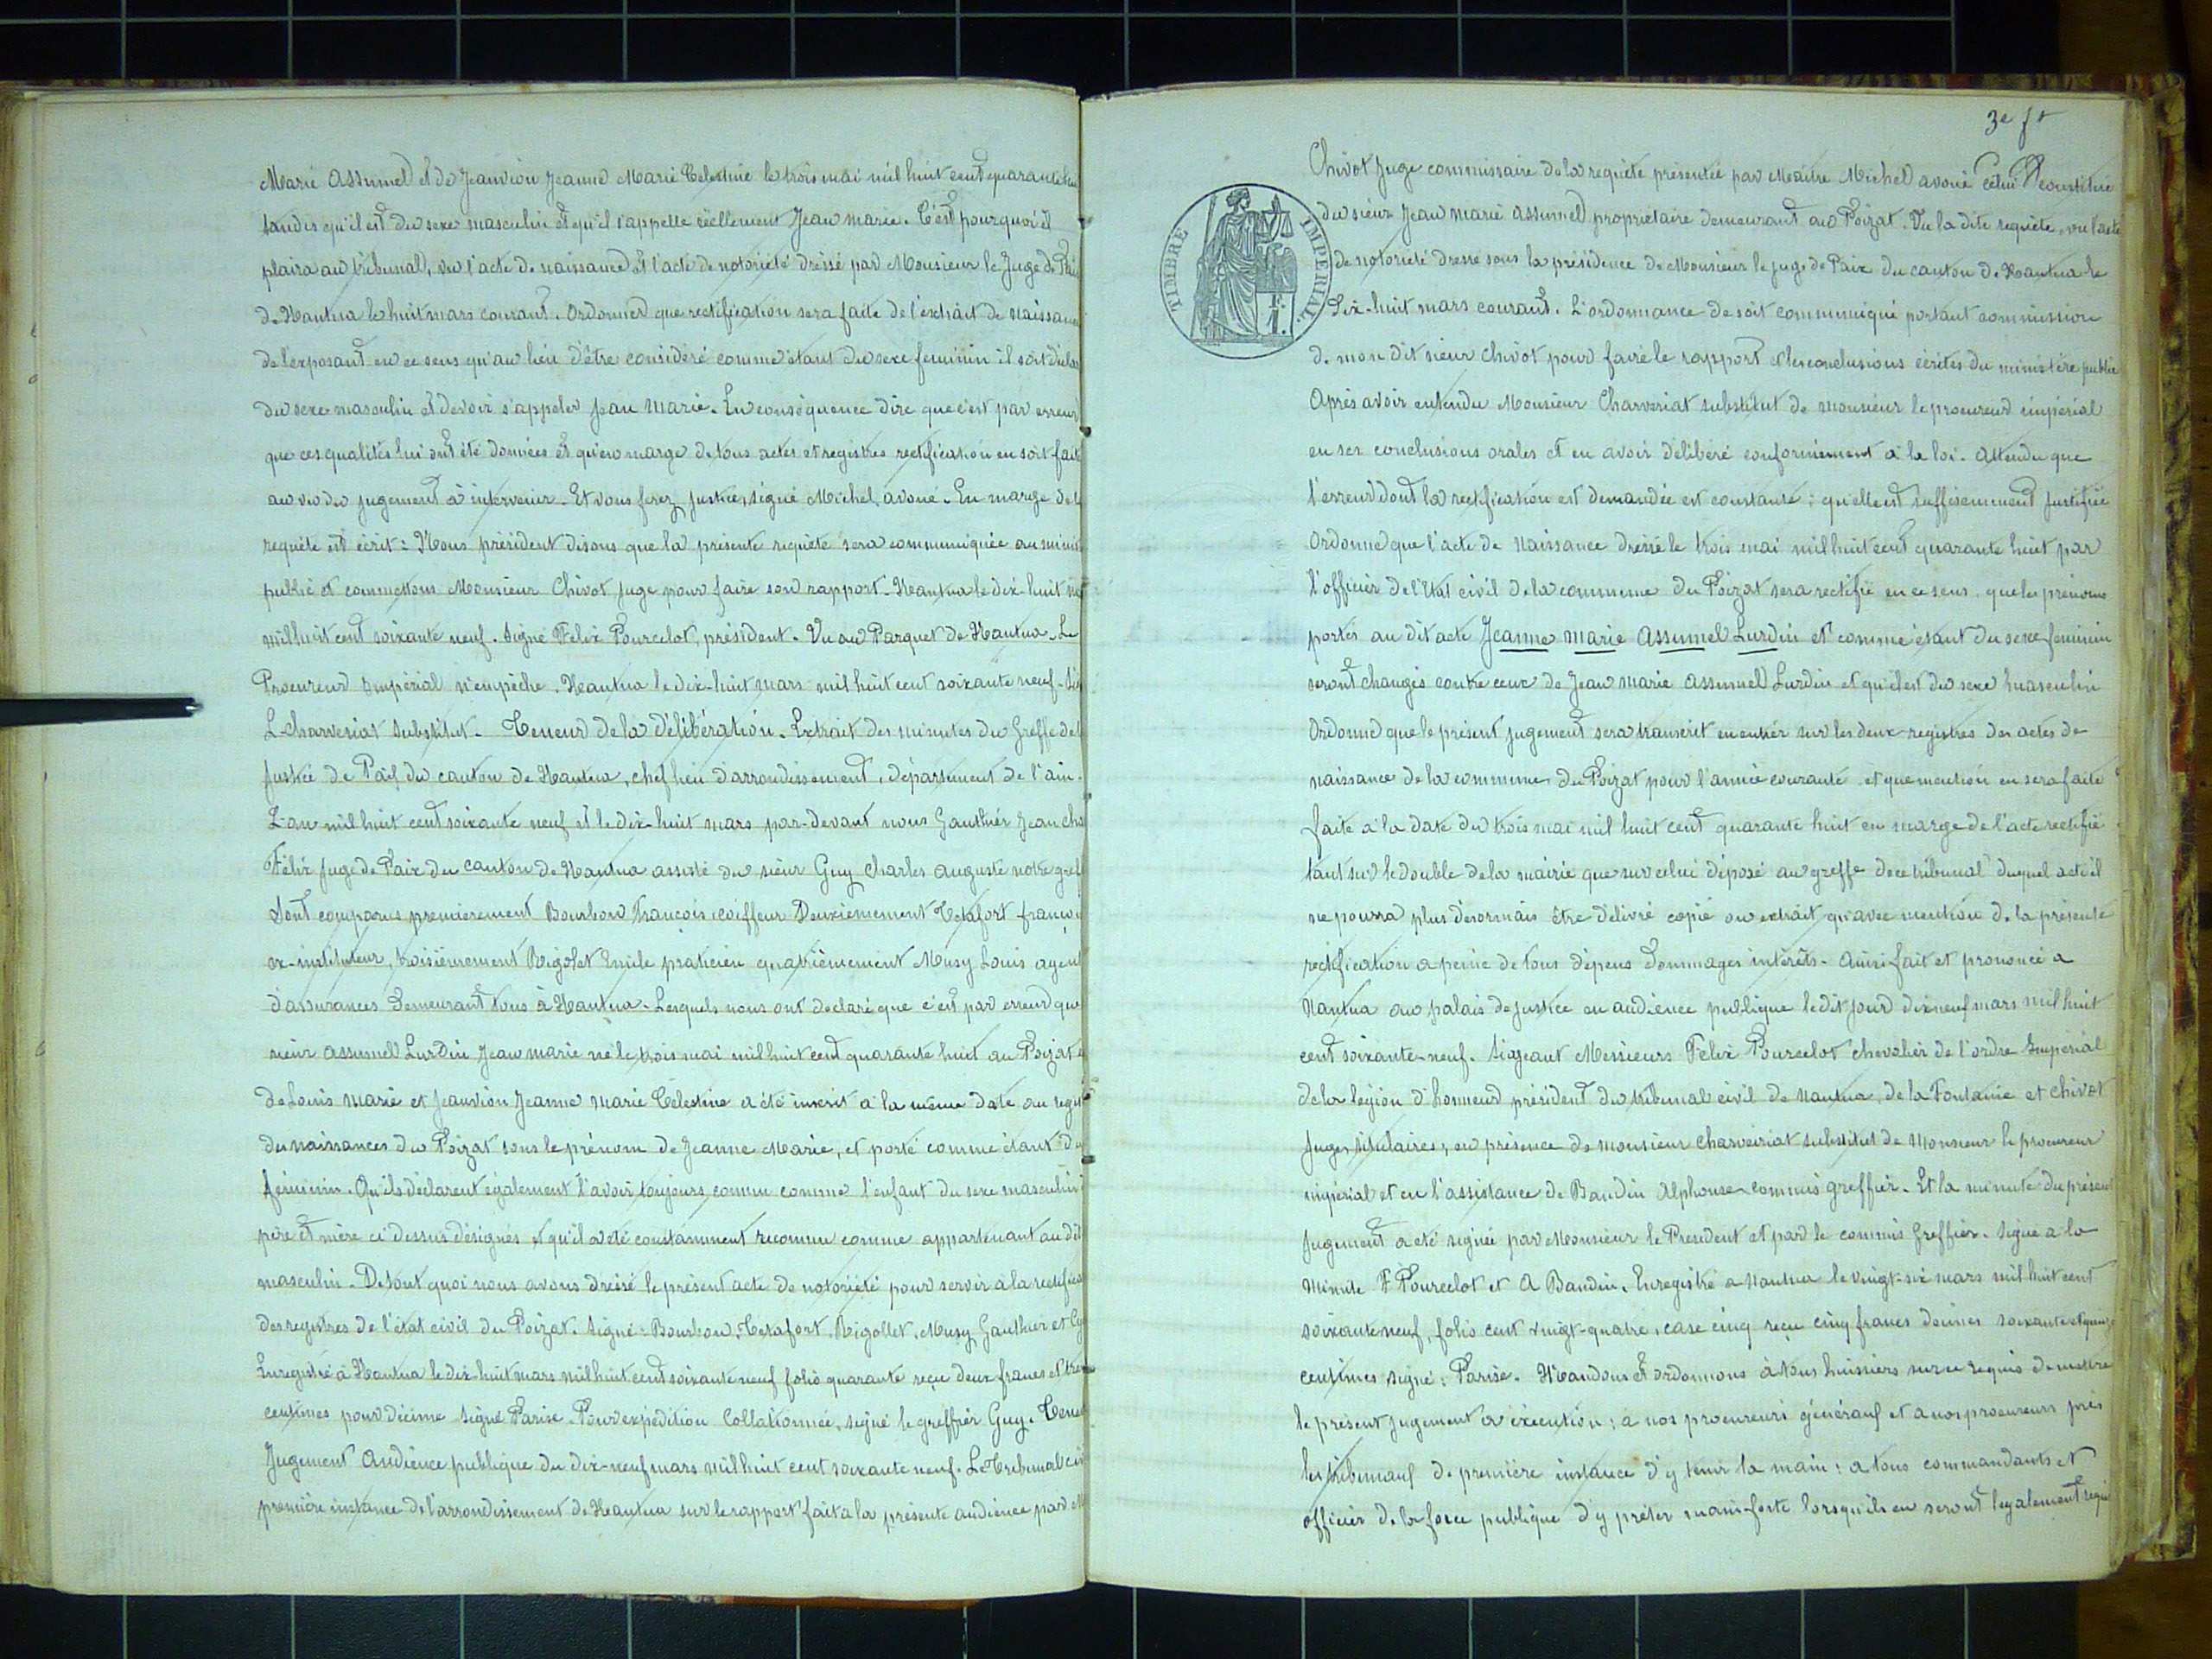 Marie Assumel et de Jeanvion Jeanne Marie Célestine le trois mai mil huit cent quarante huit
tandis qu'il est du sexe masculin et qu'il s'appelle réellement Jean Marie. C'est pourquoi il
plaira au tribunal, vu l'acte de naissance et l'acte de notoriété dressé par Monsieur le Juge de
de Nantua le huit mars courant. Ordonner que rectification sera faite de l'extrait de naissance
de l'exposant en ce sens qu'au lieu d'être considéré comme étant du sexe féminin il soit
du sexe masculin et devoir s'appeler Jean Marie. En conséquence dire que c'est par erreur
que ces qualités lui ont été données et qu'en marge de tous actes et registres rectification en soit faite
au vu du jugement à intervenir. Et vous ferez justice, signé Michel, avoué. En marge de
requête est écrit : Nous président disons que la présente requête sera communiquée au
public et commettons Monsieur Chivot juge pour faire son rapport. Nantua le dix-huit
mil huit cent soixante neuf. Signé Félix Pourcelot, président. Vu au Parquet de Nantua. Le
Procureur Impérial n'empêche. Nantua le dix-huit mars mil huit cent soixante neuf.
L. Charveriat Substitut. Teneur de la délibération. Extrait des minutes du Greffe de
Justice de Paix du canton de Nantua, chef lieu d'arrondissement, département de l'ain.
L'an mil huit cent soixante neuf et le dix-huit mars par-devant nous Gauthier Jean
Félix juge de Paix du canton de Nantua assisté du sieur Guy Charles Auguste notre
Sont comparus premièrement Bourbon François coiffeur Deuxièmement Tétafort
ex-instituteur, troisièmement Rigolet Emile praticien quatrièmement Musy Louis agent
d'assurances demeurant tous à Nantua. Lesquels nous ont déclaré que c'est par erreur que
sieur Assumel Lurdin Jean marie né le trois mai mil huit cent quarante huit au Poizat
de Louis marie et Jeanvion Jeanne marie Célestine a été inscrit à la même date au
des naissances du Poizat sous le prénom de Jeanne Marie, et porté comme étant du
féminin. Qu'ils déclarent également l'avoir toujours connu comme l'enfant du sexe masculin
père et mère ci dessus désignés et qu'il a été constamment reconnu comme appartenant au dit
masculin. De tout quoi nous avons dressé le présent acte de notoriété pour servir à la
des registres de l'état civil du Poizat. Signé : Bourbon, Tétafort, Rigollet, Musy, Gauthier et
Enregistré à Nantua le dix-huit mars mil huit cent soixante neuf folio quarante reçu deux francs et
centimes pour décime signé Parise. Pour expédition Collationnée, signé le greffier Guy.
Jugement Audience publique du dix-neuf mars mil huit cent soixante neuf. Le Tribunal
première instance de l'arrondissement de Nantua sur le rapport fait à la présente audience par
3e ft
Chivot Juge commissaire de la requête présentée par Maître Michel avoué
du sieur Jean Marie Assumel propriétaire demeurant au Poizat. Vu la dite requête, vu l'acte
de notoriété dressé sous la présidence de Monsieur le juge de Paix du canton de Nantua le
Dix-huit mars courant. L'ordonnance de soit communiqué portant commission
de mon dit sieur Chivot pour faire le rapport et les conclusions écrites du ministère public
Après avoir entendu Monsieur Charveriat substitut de monsieur le procureur impérial
en ses conclusions orales et en avoir délibéré conformément à la loi. Attendu que
l'erreur dont la rectification est demandée est constante ; qu'elle est suffisemment justifiée
Ordonne que l'acte de Naissance dressé le trois mai mil huit cent quarante huit par
l'officier de l'Etat civil de la commune du Poizat sera rectifié en ce sens que les prénoms
portés au dit acte Jeanne Marie Assumel Lurdin et comme étant du sexe féminin
seront changés contre ceux de Jean Marie Assumel Lurdin et qu'il est du sexe masculin
Ordonne que le présent jugement sera transcrit en entier sur les deux registres des actes de
naissance de la commune du Poizat pour l'année courante et que mention en sera faite
faite à la date du trois mai mil huit cent quarante huit en marge de l'acte rectifié
tant sur le double de la mairie que sur celui déposé au greffe de ce tribunal duquel acte il
ne pourra plus désormais être délivré copié ou extrait qu'avec mention de la présente
rectification a peine de tous dépens dommages intérêts. Ainsi fait et prononcé a
Nantua au palais de justice en audience publique le dit jour dix neuf mars mil huit
cent soixante-neuf. Siégeant Messieurs Felix Pourcelot chevalier de l'ordre Impérial
de la légion d'honneur président du tribunal civil de Nantua, de la Fontaine et Chivot
juges titulaires, en présence de monsieur Charveriat substitut de Monsieur le procureur
impérial et en l'assistance de Baudin Alphonse commis greffier. Et la minute du présent
jugement a été signée par Monsieur le Président et par le commis Greffier. Signé a la
Minute F Pourcelot et A Baudin. Enregistré a Nantua le vingt-six mars mil huit cent
soixante neuf, folio cent vingt-quatre, case cinq reçu cinq francs décimes soixante et quinze
centimes signé : Parise. Mandons et ordonnons à tous huissiers sur ce requis de mettre
le présent jugement a exécution ; à nos procureurs généraux et a nos procureurs près
les tribunaux de première instance d'y tenir la main : a tous commandants et
officier de la force publique d'y prêter main-forte lorsqu'ils en seront légalement requis
TIMBRE IMPERIAL